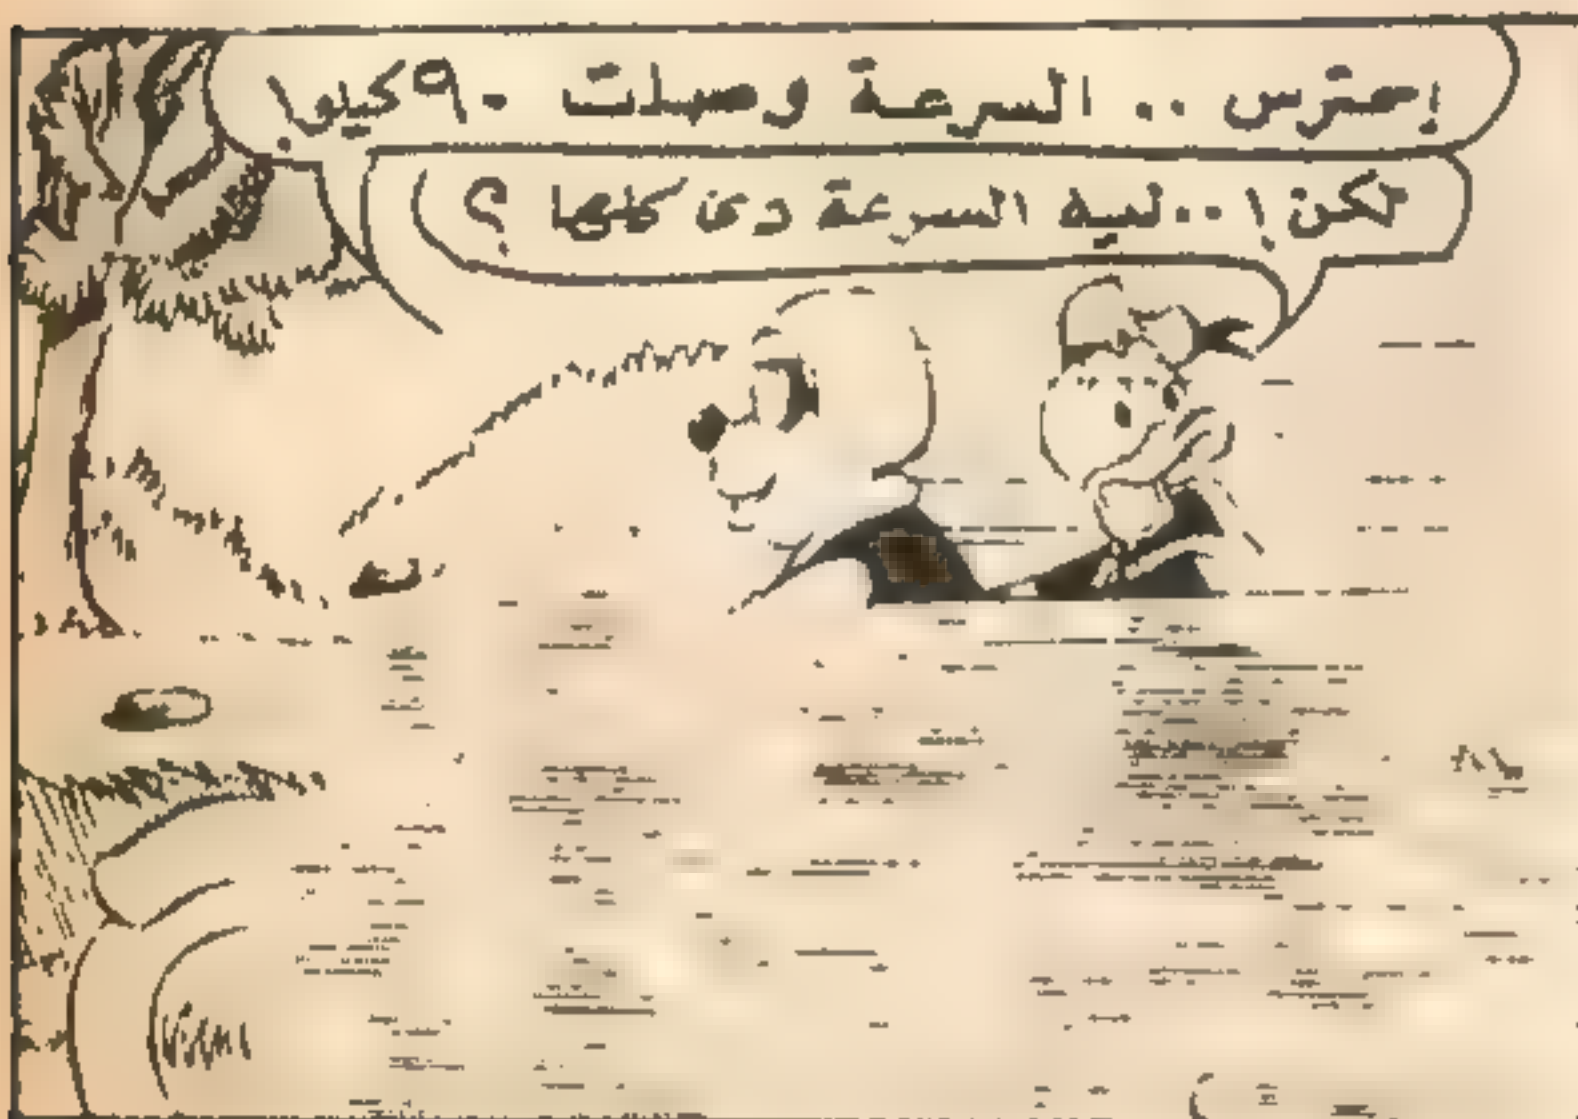 إحترس .. السرعة وصلت ٩٠ كيلو!
لكن!.. ليه السرعة دى كلها ؟